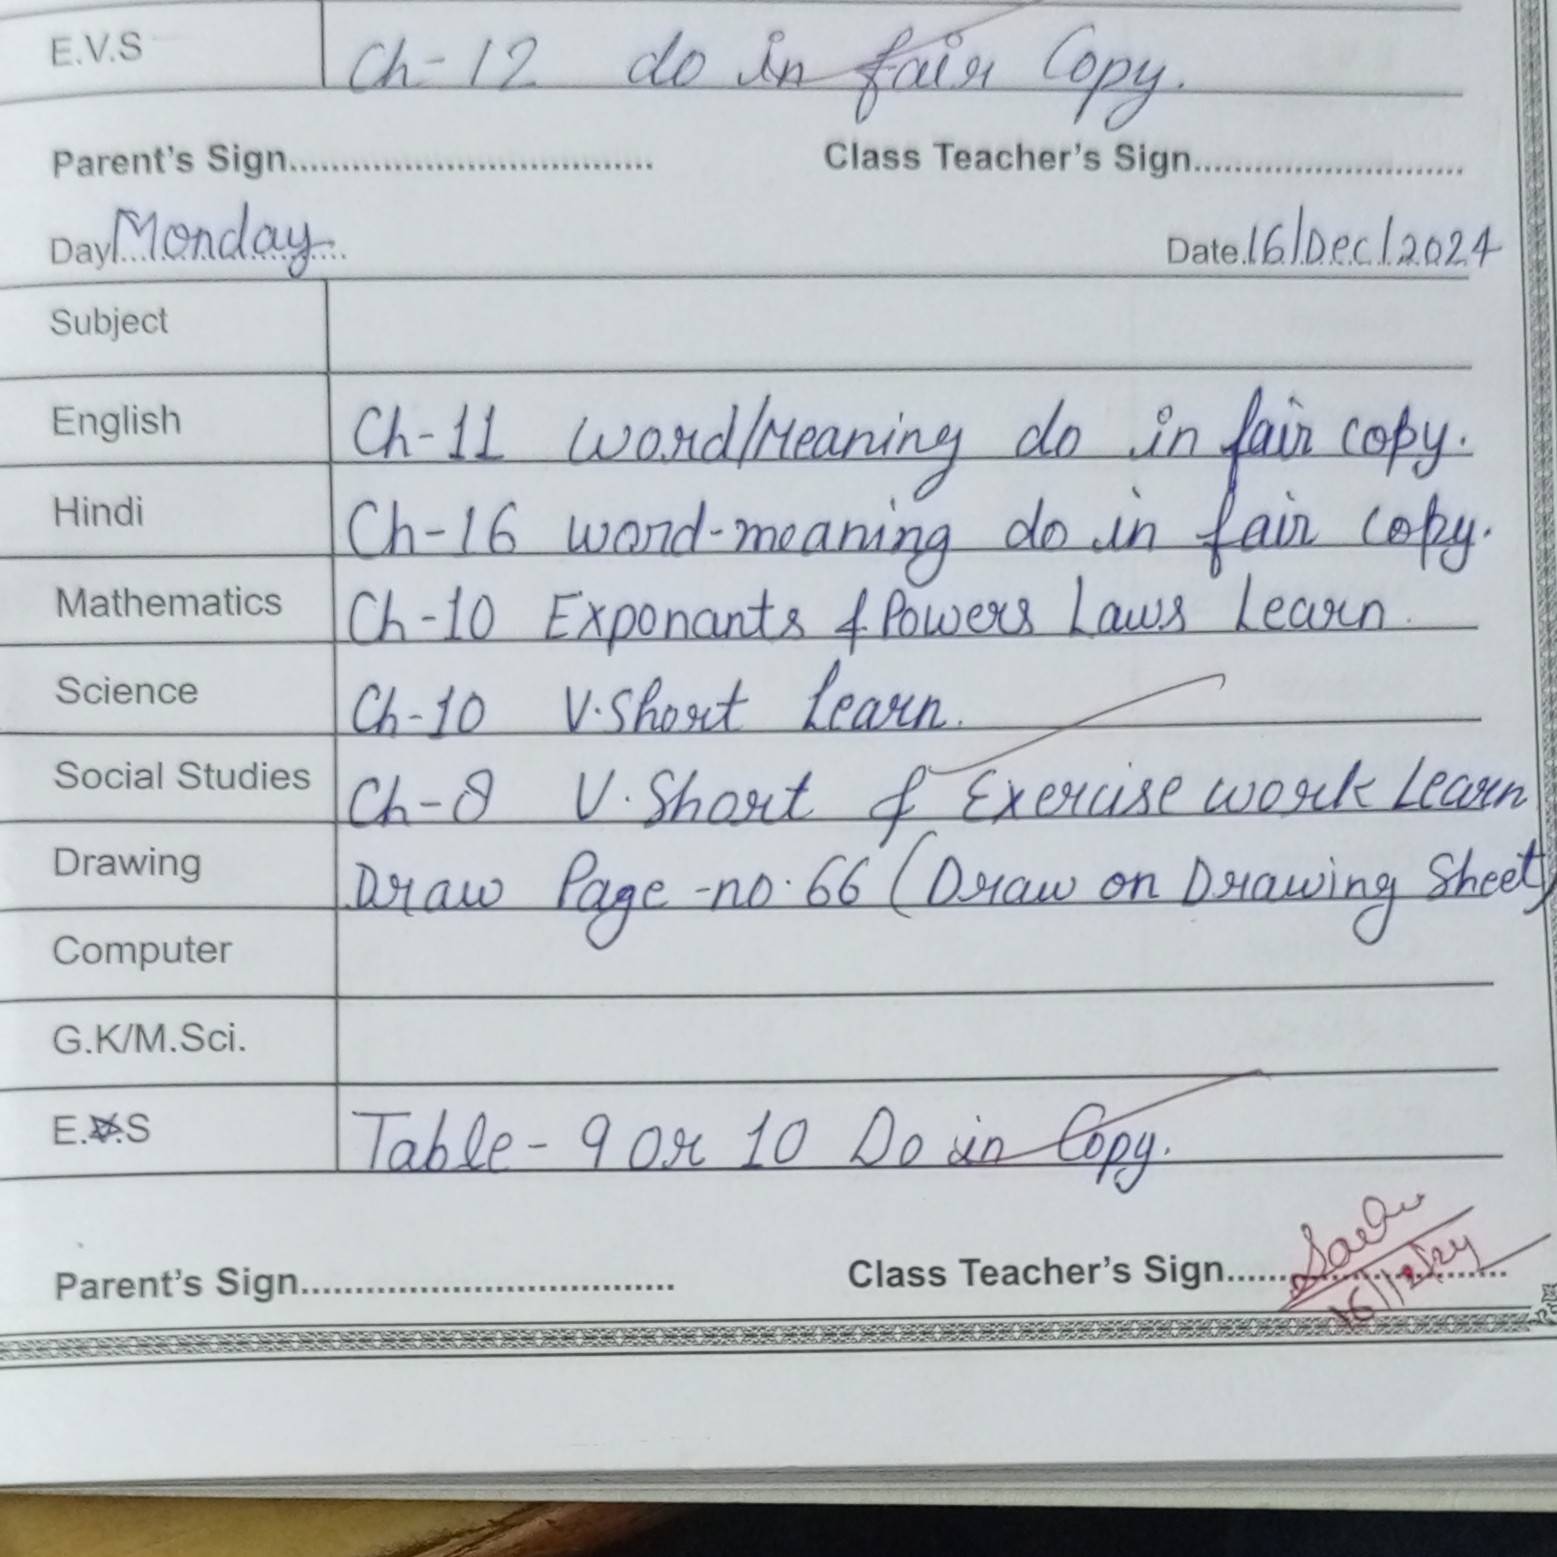 E.V.S Ch-12 do in fair Copy.
Parent's Sign.................................... Class Teacher's Sign..........................
Day Monday Date 16/Dec/2024
Subject
English Ch-11 Word/Meaning do in fair copy.
Hindi Ch-16 word-meaning do in fair copy.
Mathematics Ch-10 Exponants & Powers Laws Learn.
Science Ch-10 V.Short Learn.
Social Studies Ch-8 V.Short & Exercise work Learn
Drawing Draw Page-no.66 (Draw on Drawing Sheet)
Computer
G.K/M.Sci.
E. .S Table-9 Or 10 Do in Copy.
Parent's Sign.................................... Class Teacher's Sign..........................
16/12/24